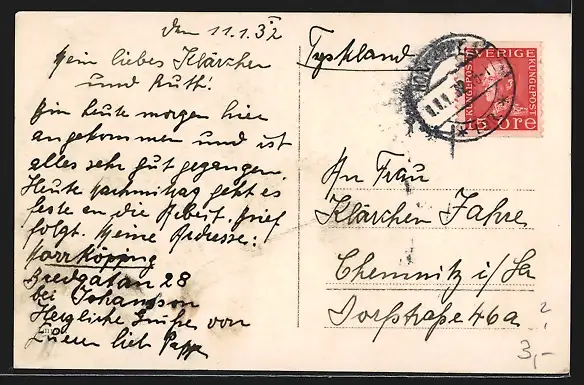 den 11.1.32
Mein liebes Klärchen
und Ruth!
Bin heute morgen hier
angekommen und ist
alles sehr gut gegangen.
Heute nachmittag geht es
feste an die Arbeit. Brief
folgt. Meine Adresse:
Norrköping
Bredgatan 28
bei Johansson
Herzliche Grüße von
Euern lieb Papp
Tyskland
SVERIGE
KUNGL·POST
15 ÖRE
An Frau
Klärchen Jahre
Chemnitz i/Sa
Dorfstraße 46a
3,-